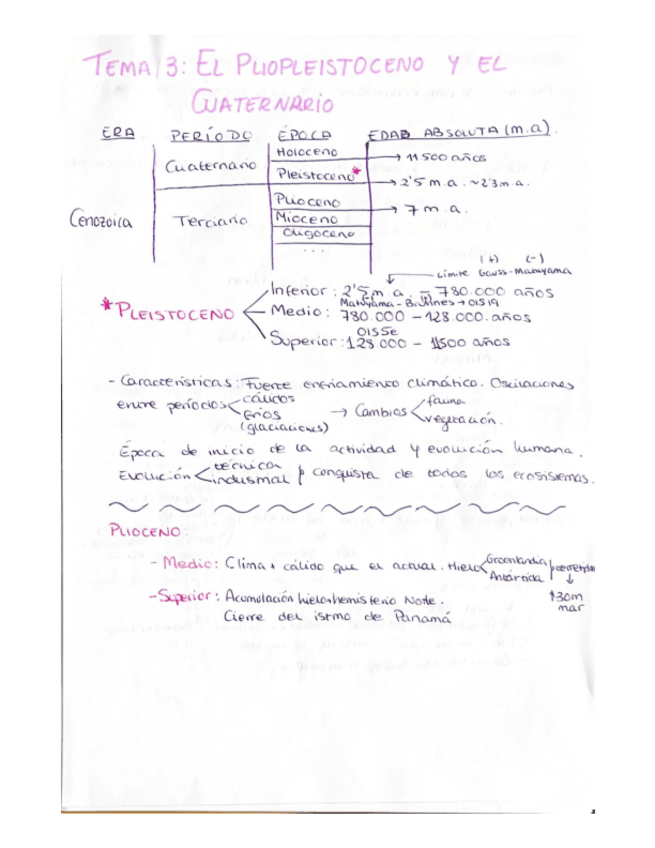 TEMA 3: EL PLIOPLEISTOCENO Y EL
CUATERNARIO
ERA PERÍODO ÉPOCA EDAD ABSOLUTA (m.a).
Holoceno → 11500 años
Cuaternario Pleistoceno* → 2'5 m.a. ~2'3 m.a.
Plioceno → 7 m.a.
Cenozoica Terciario Mioceno
Oligoceno
...
(+) (-)
Límite Gauss-Matuyama
Inferior: 2'5 m.a. - 780.000 años
Matuyama-Bruhnes → OIS19
*PLEISTOCENO Medio: 780.000 - 128.000. años
OIS5e
Superior: 128.000 - 11500 años
- Características: Fuerte enfriamiento climático. Oscilaciones
entre períodos cálidos fríos (glaciaciones) → Cambios fauna vegetación.
Época de inicio de la actividad y evolución humana.
Evolución técnica industrial conquista de todos los ecosistemas.
PLIOCENO:
- Medio: Clima + cálido que el actual. Hielo Groenlandia Antártida
↑30m
mar
- Superior: Acumulación hielo hemisferio Norte.
Cierre del istmo de Panamá